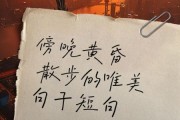 傍晚黄昏
散步的唯美
句干短句